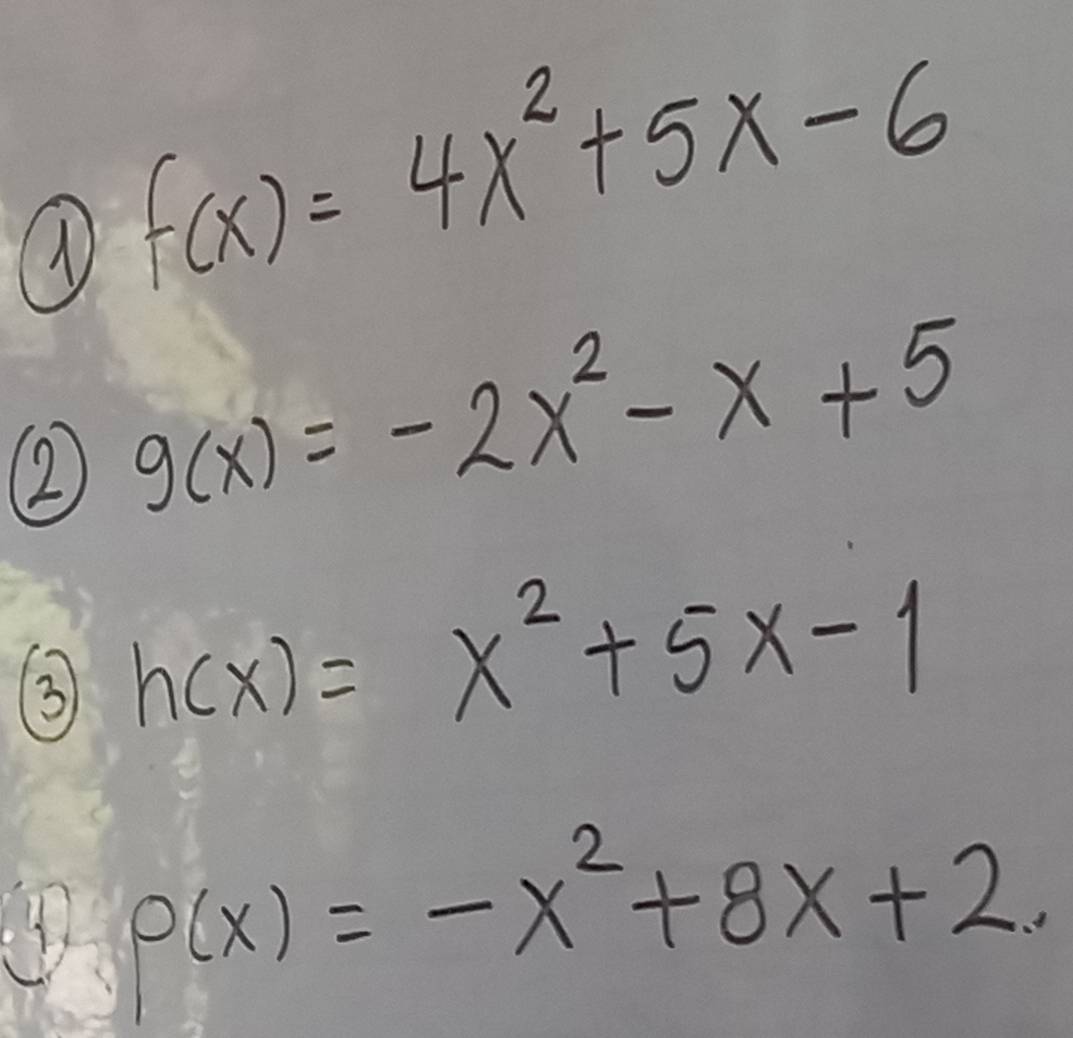 ① f(x) = 4x² + 5x - 6
② g(x) = -2x² - x + 5
③ h(x) = x² + 5x - 1
④ p(x) = -x² + 8x + 2.